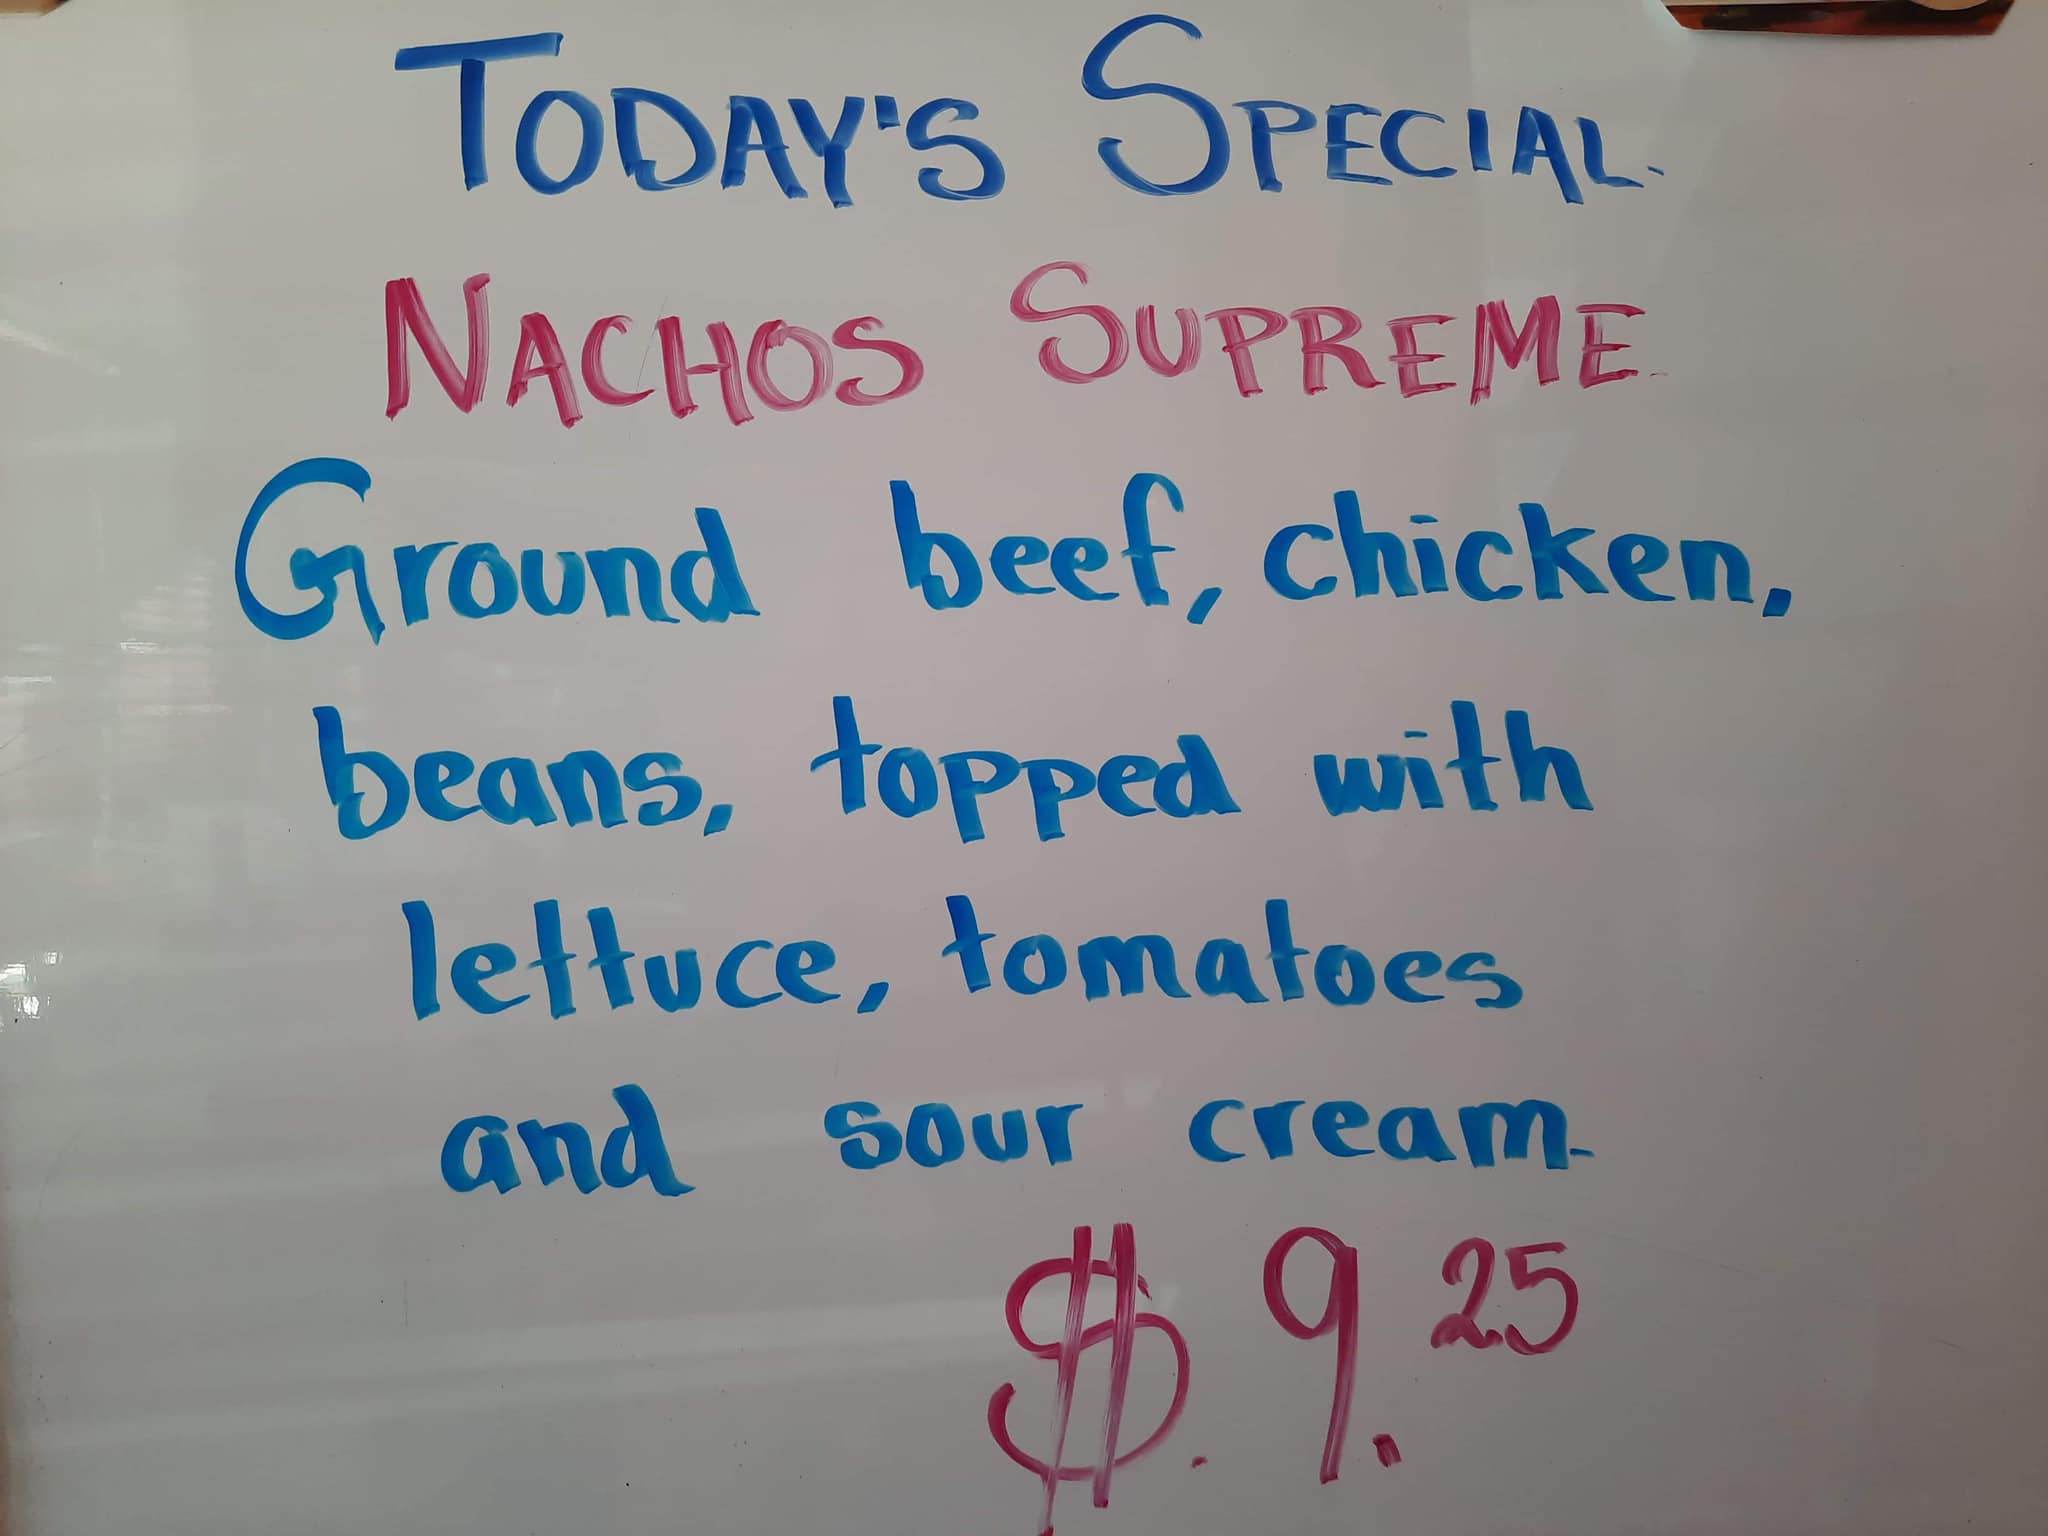 TODAY'S SPECIAL.
NACHOS SUPREME.
Ground beef, chicken,
beans, topped with
lettuce, tomatoes
and sour cream.
$. 9.25